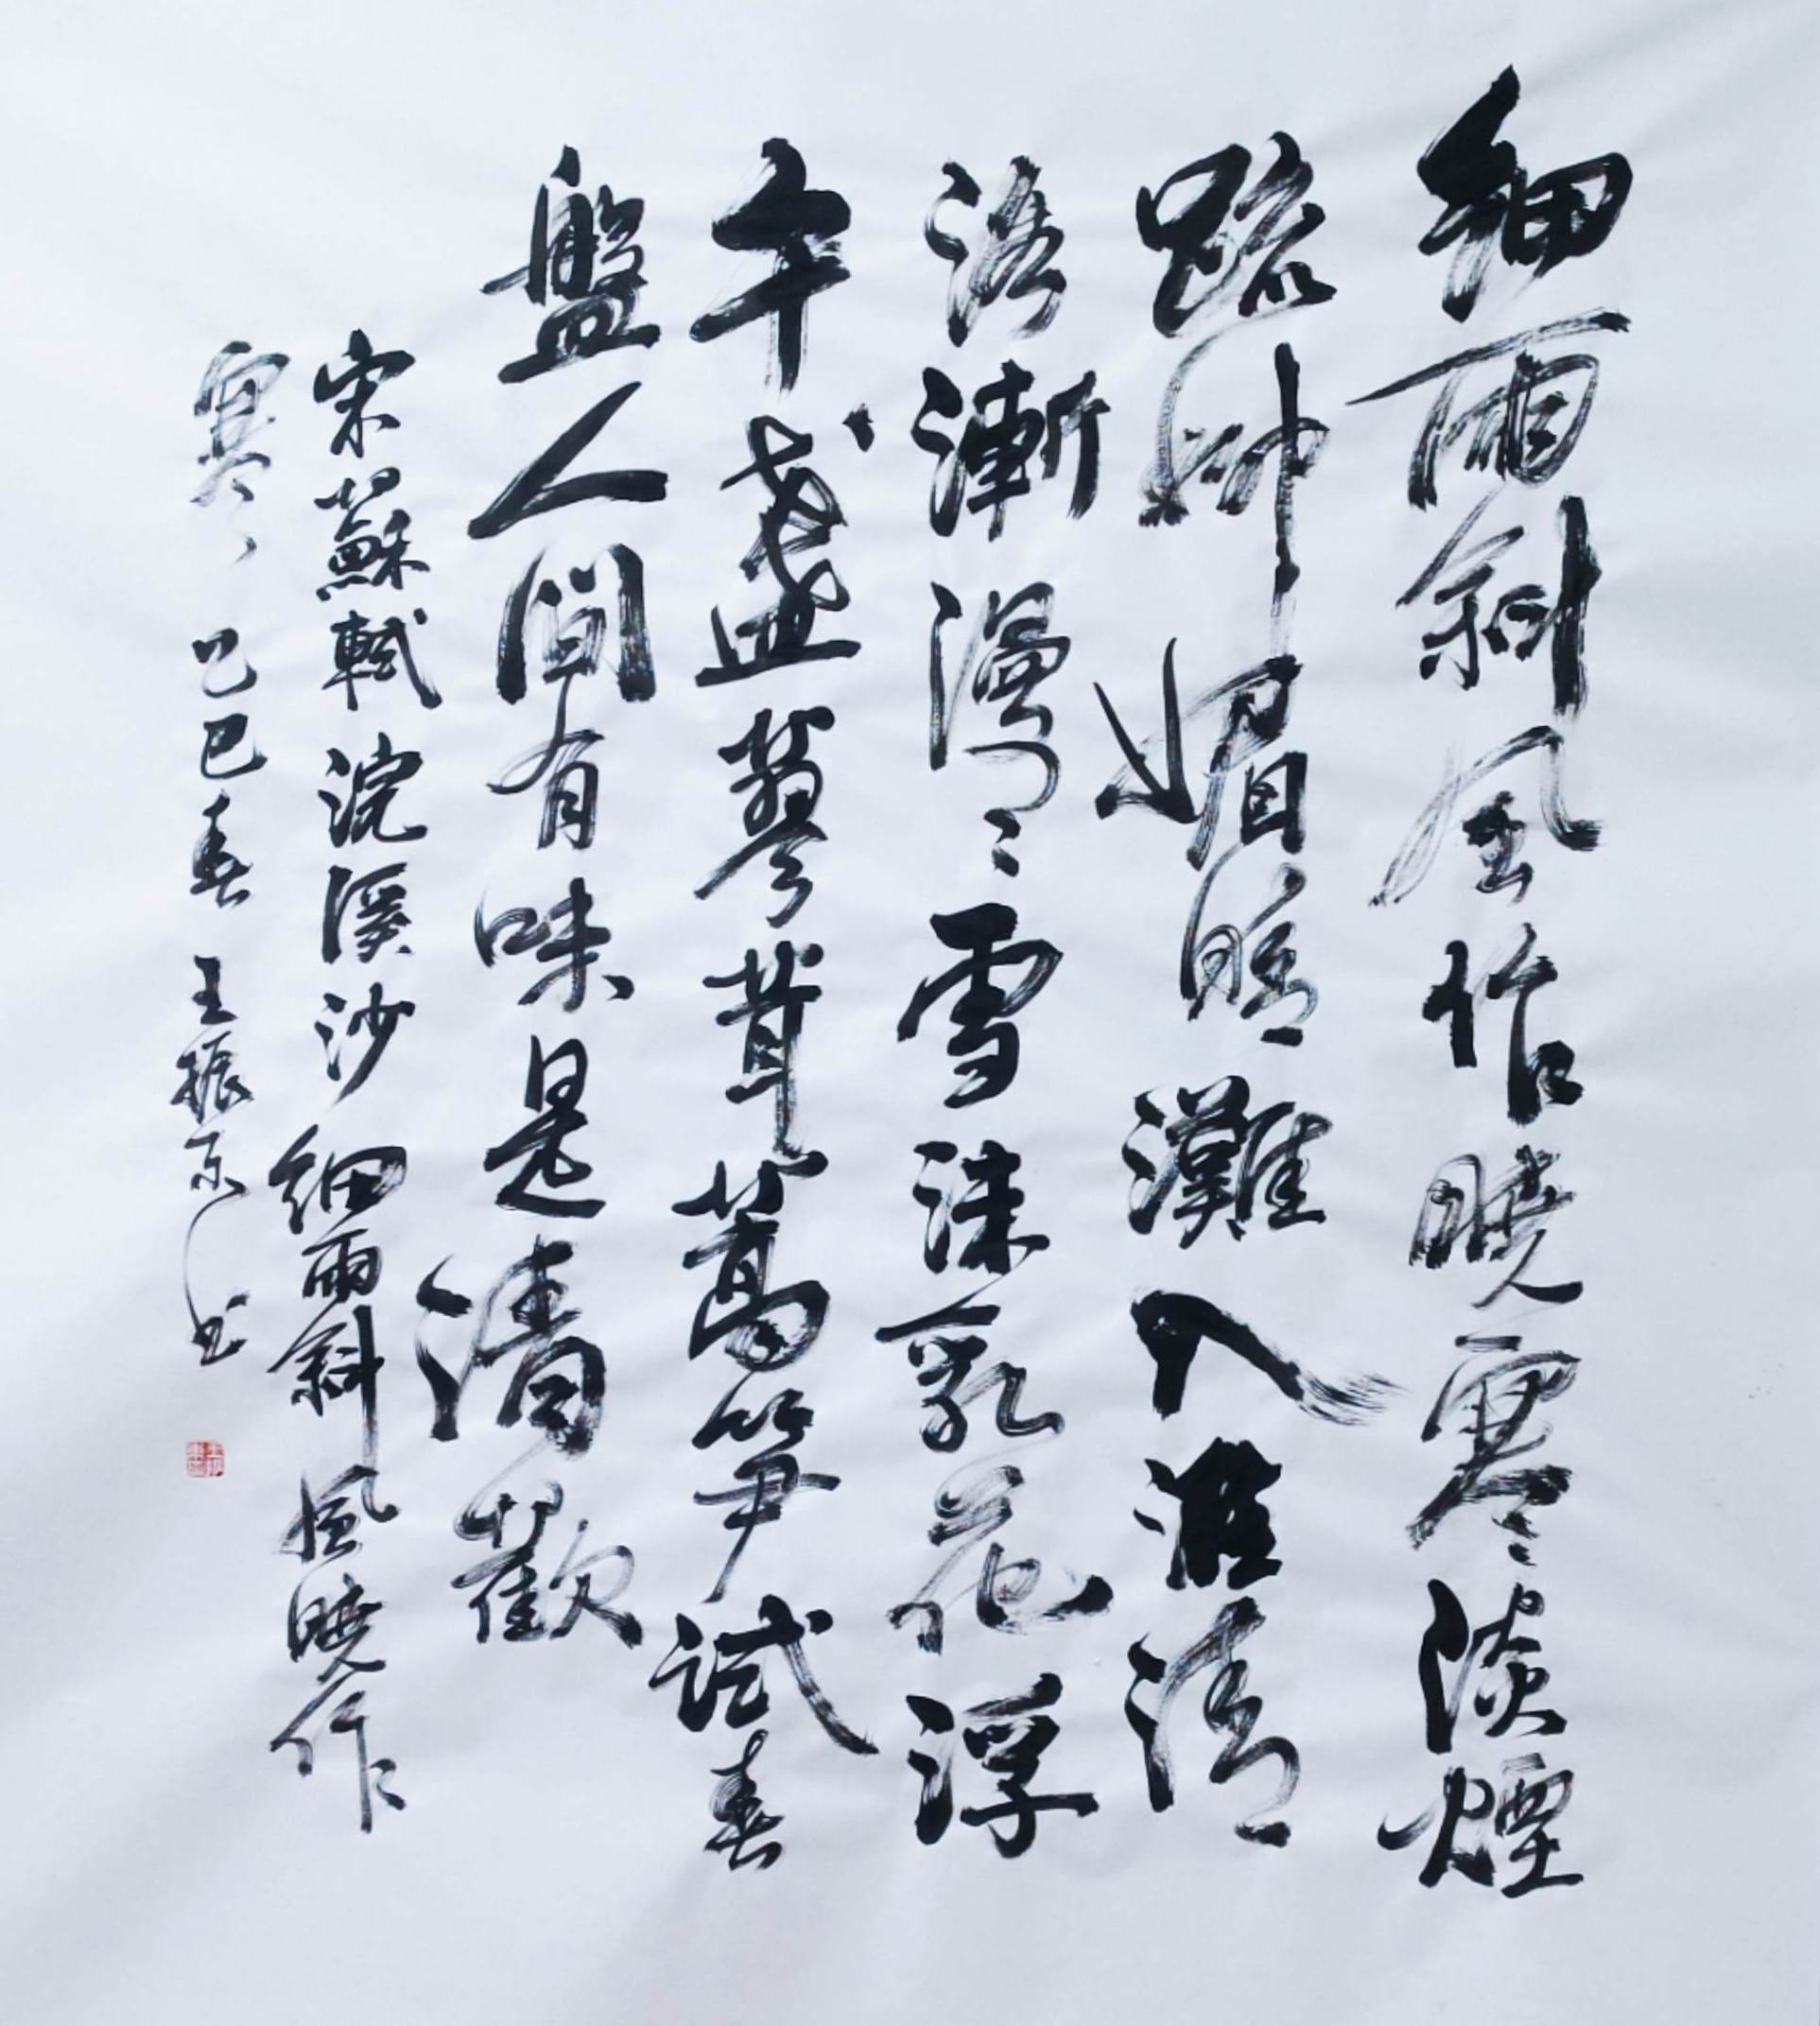 細雨斜風作曉寒淡煙
疏柳媚晴灘入淮清
洛漸漫〻雪沫乳花浮
午盞蓼茸蒿笋試春
盤人間有味是清歡
宋蘇軾浣溪沙細雨斜風曉作
寒乙巳春王振书